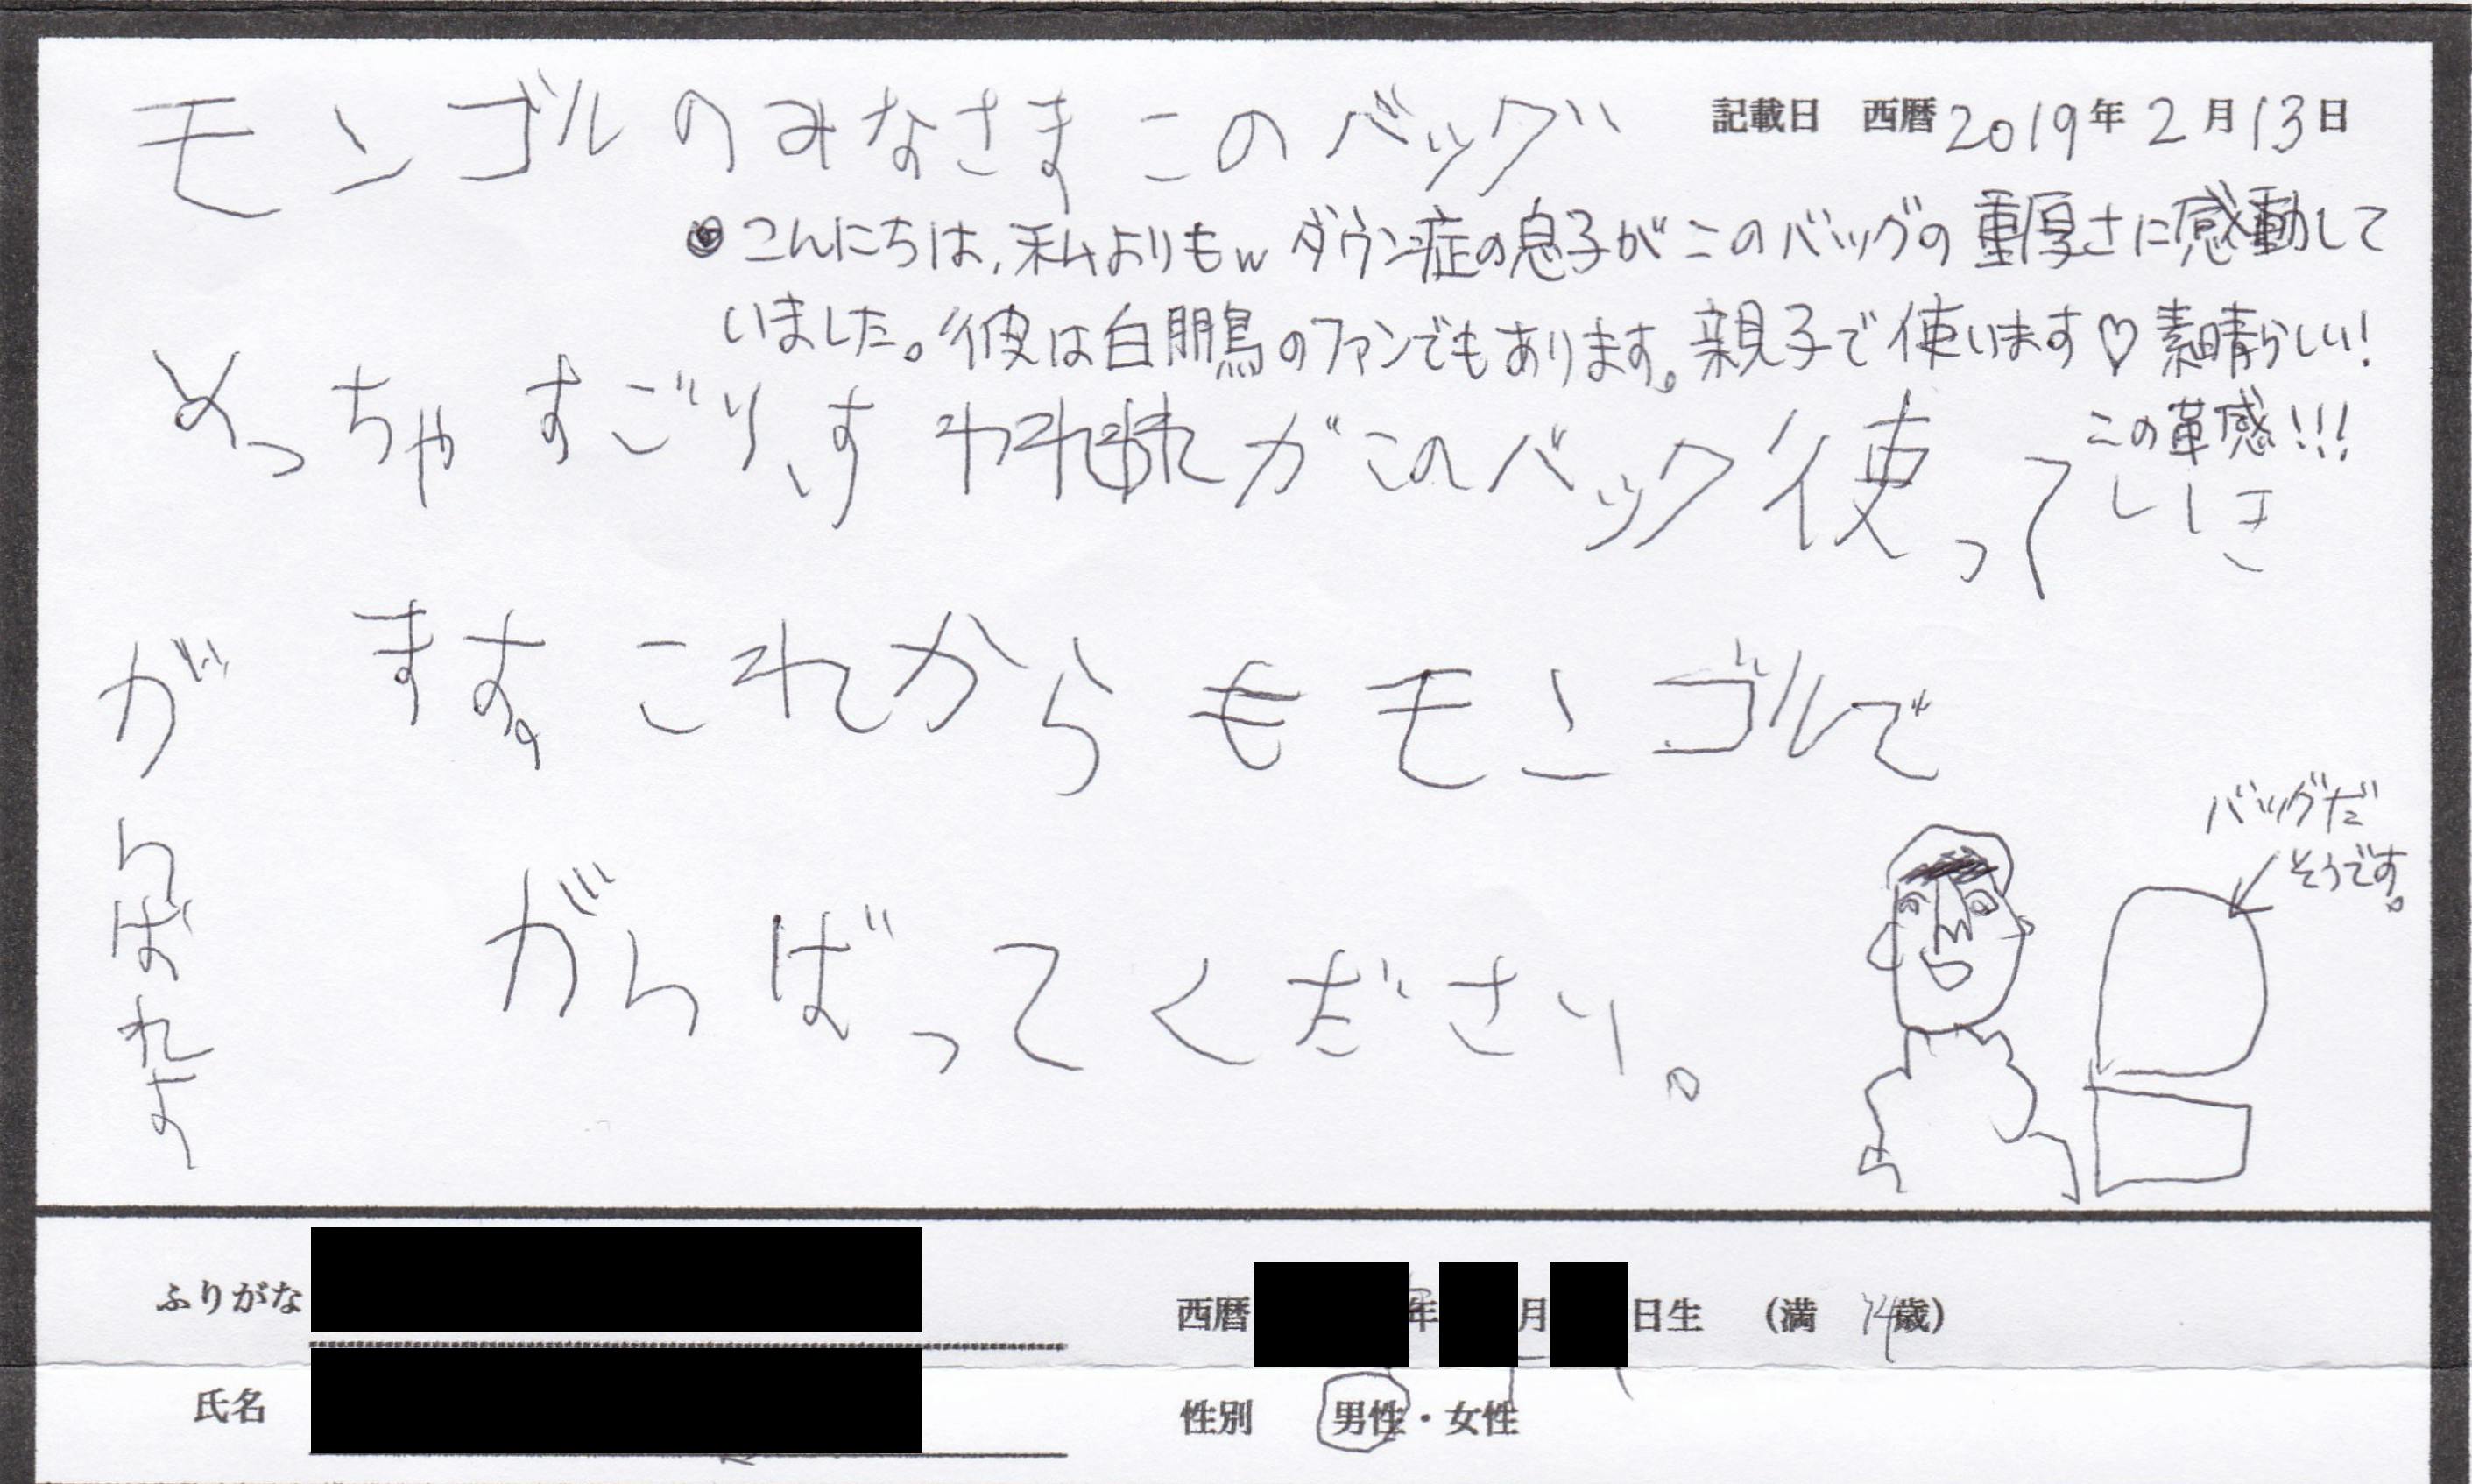 モンゴルのみなさまこのバッグ
記載日 西暦2019年2月13日
◎こんにちは、私よりもw ダウン症の息子がこのバッグの重厚さに感動して
いました。彼は白鵬のファンでもあります。親子で使います♡素晴らしい!
この革感!!!
めっちゃすごいす がこのバック使って
ます。これからもモンゴルで
がんばってください。
がんばれよ
バッグだ
そうです。
ふりがな
西暦 年 月 日生 (満 14歳)
氏名
性別 男性・女性